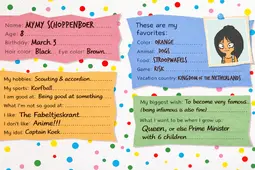 Name: MYMY SCHOPPENBOER
Age: 8
Birthday: March 3
Hair color: Black. Eye color: Brown.
These are my
favorites:
Color: ORANGE
Animal: DOGS
Food: STROOPWAFELS
Game: RISK
Vacation country: KINGDOM OF THE NETHERLANDS
My hobbies: Scouting & accordion.
My sports: Korfball.
I am good at: Being good at something.
What I'm not so good at:
I like: The Fabeltjeskrant.
I don't like: Anime!!!
My idol: Captain Koek
My biggest wish: To become very famous.
(being infamous is also fine)
What I want to be when I grow up:
Queen, or else Prime Minister
with 6 children